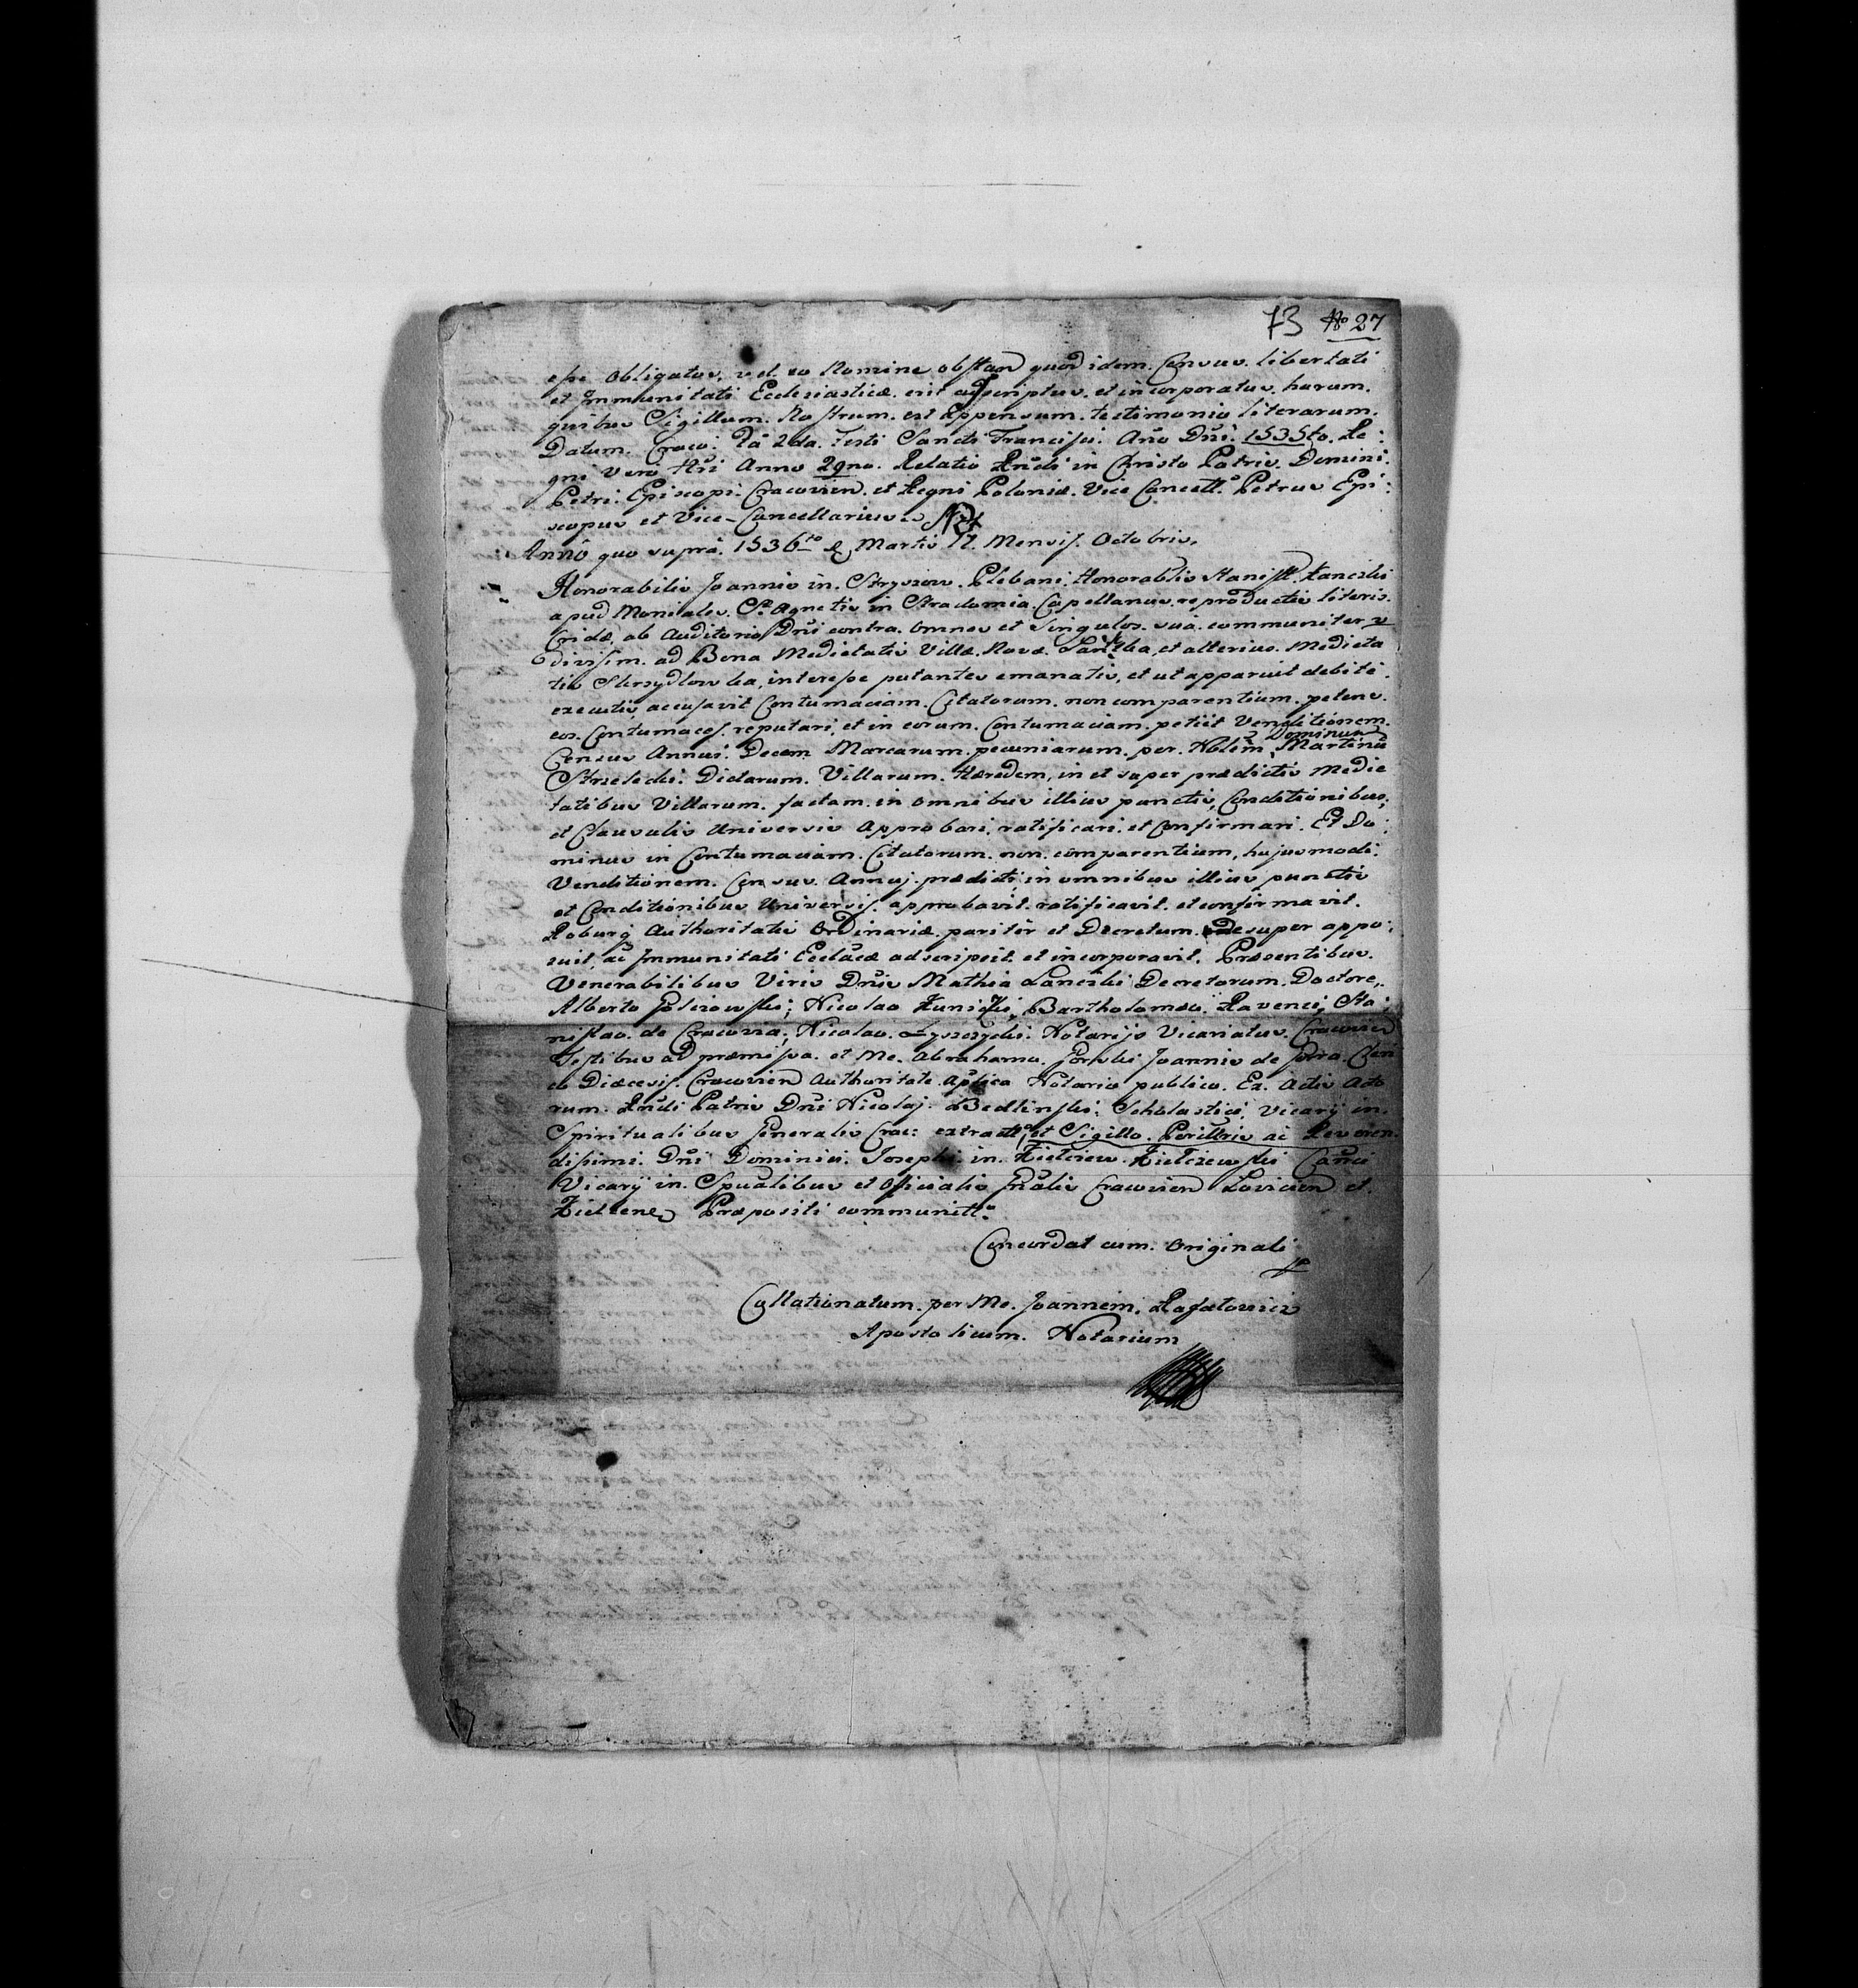 73 No 27
esse obligatus, vel eo Nomine obstan quod idem. Census. libertati
et Immunitati Ecclesiasticæ. erit adscriptus. et incorporatus. harum.
quibus Sigillum. Nostrum. est Appensum. testimonio literarum.
Datum. Craco: 2da. Festi Sancti Francisci. Año Dñi. 1535to. Re:
gni vero Nri Anno 29no. Relatio Rndi in Christo Patris. Domini.
Petri. Episcopi. Cracovien. et Regni Poloniæ. Vice Cancell. Petrus Epi:
scopus et Vice-Cancellarius.
Anno quo supra. 1536to Martis 17. Mensis. Octobris.
Honorabilis Joannis in. Stryszow. Plebani. Honorabilis Stanisl.
apud Moniales. S. Agnetis in Stradomia. Capellanus. reproductis literis.
Cridæ. ab Auditorio Dñi contra. omnes et Singulos. sua. communiter v
divisim. ad Bona Medietatis Villæ. Novæ. et alterius. Medieta
tis Skrzydlowka, interesse putantes emanatis, et ut apparuit debite.
executis, accusavit Contumaciam. Citatorum. non comparentium. petens.
eos. Contumaces. reputari, et in eorum. Contumaciam. petiit Venditionem.
Census Annui. Decem Marcarum. pecuniarum. per. Nobilem Dominum Martinũ
Strzelecki. Dictarum. Villarum. Hæredem, in et super prædictis Medie
tatibus Villarum. factam. in omnibus illius punctis, Conditionibus,
et Clausulis Universis Approbari. ratificari. et Confirmari. Et Do:
minus in Contumaciam. Citatorum. non. comparentium, hujusmodi.
Venditionem. Census. Annuj. prædicti, in omnibus illius punctis
et Conditionibus Universis. approbavit. ratificavit. et confirmavit.
Roburq Authoritatis Ordinariæ. pariter et Decretum. desuper appo:
suit, ac Immunitati Eccláeæ adscripsit. et incorporavit. Præsentibus.
Venerabilibus Viris Dñis Mathia Decretorum. Doctore,
Alberto Nicolao Bartholomæo. Sta:
nislao. de Cracovia, Nicolao. Notarijs Vicariatus. Cracovien
Testibus ad præmissa. et Me. Abrahamo. Joannis de Cleri
co Diæcesis. Cracovien Authoritate. Aplica Notario publico. Ex. Actis Acto
rum. Rndi Patris Dñi Nicolaj. Bedlinski: Scholastici, Vicarij in.
Spiritualibus Generalis Crac: extract et Sigillo. Perillris ac Reveren.
dissimi. Dñi Dominici. Josephi. in. Kielczew. Kielczewski Canci
Vicarij in. Spũalibus et Officialis Gñalis Cracovien Lovicien et.
Kielcene Præpositi communitt.
Concordat cum. Originali
Collationatum. per Me. Joannem. Rafalowicz
Apostolicum. Notarium